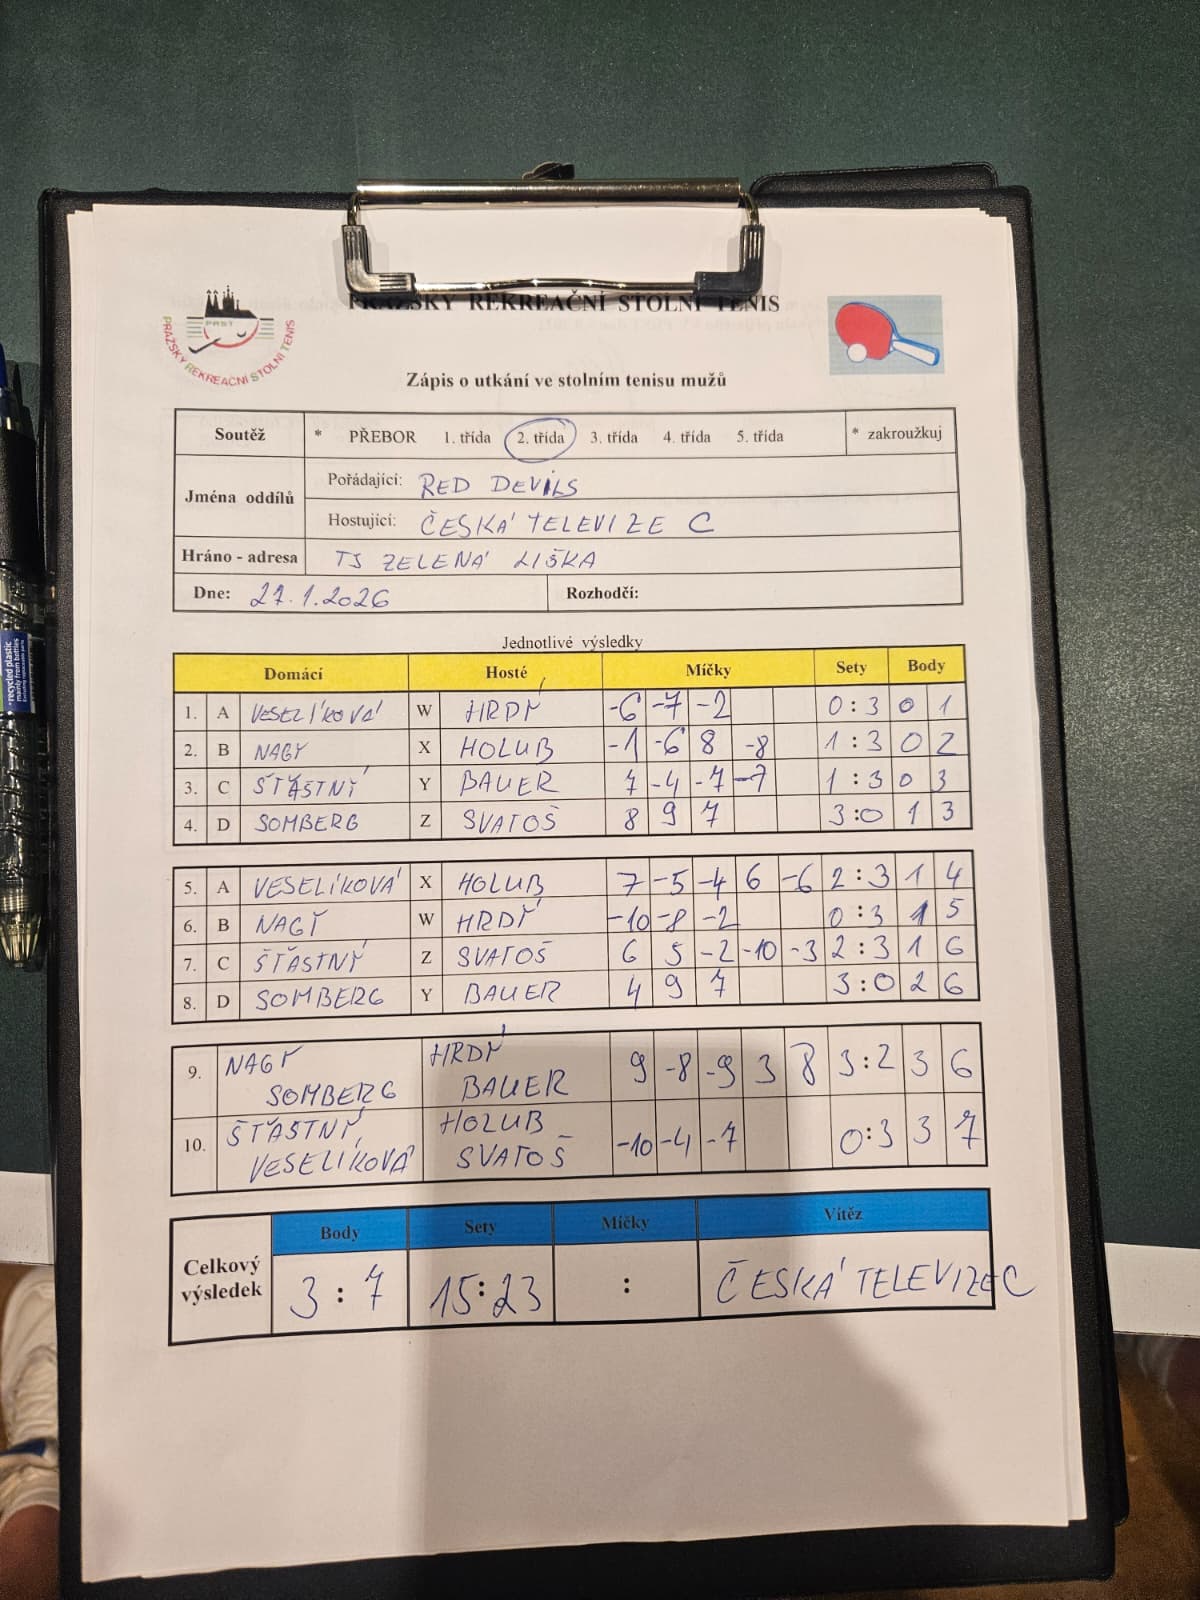 PRAŽSKÝ REKREAČNÍ STOLNÍ TENIS
PRST
PRAŽSKÝ REKREAČNÍ STOLNÍ TENIS
Zápis o utkání ve stolním tenisu mužů
Soutěž * PŘEBOR 1. třída 2. třída 3. třída 4. třída 5. třída * zakroužkuj
Jména oddílů
Pořádající: RED DEVILS
Hostující: ČESKÁ TELEVIZE C
Hráno - adresa TJ ZELENÁ LIŠKA
Dne: 27.1.2026 Rozhodčí:
Jednotlivé výsledky
Domácí Hosté Míčky Sety Body
1. A VESELÍKOVÁ W HRDÝ -6 -7 -2 0:3 0 1
2. B NAGY X HOLUB -1 -6 8 -8 1:3 0 2
3. C ŠŤASTNÝ Y BAUER 7 -4 -7 -7 1:3 0 3
4. D SOMBERG Z SVATOŠ 8 9 7 3:0 1 3
5. A VESELÍKOVÁ X HOLUB 7 -5 -4 6 -6 2:3 1 4
6. B NAGY W HRDÝ -10 -8 -2 0:3 1 5
7. C ŠŤASTNÝ Z SVATOŠ 6 5 -2 -10 -3 2:3 1 6
8. D SOMBERG Y BAUER 4 9 7 3:0 2 6
9. NAGY HRDÝ 9 -8 -9 3 8 3:2 3 6
SOMBERG BAUER
10. ŠŤASTNÝ HOLUB -10 -4 -7 0:3 3 7
VESELÍKOVÁ SVATOŠ
Body Sety Míčky Vítěz
Celkový výsledek 3:7 15:23 : ČESKÁ TELEVIZE C
recycled plastic